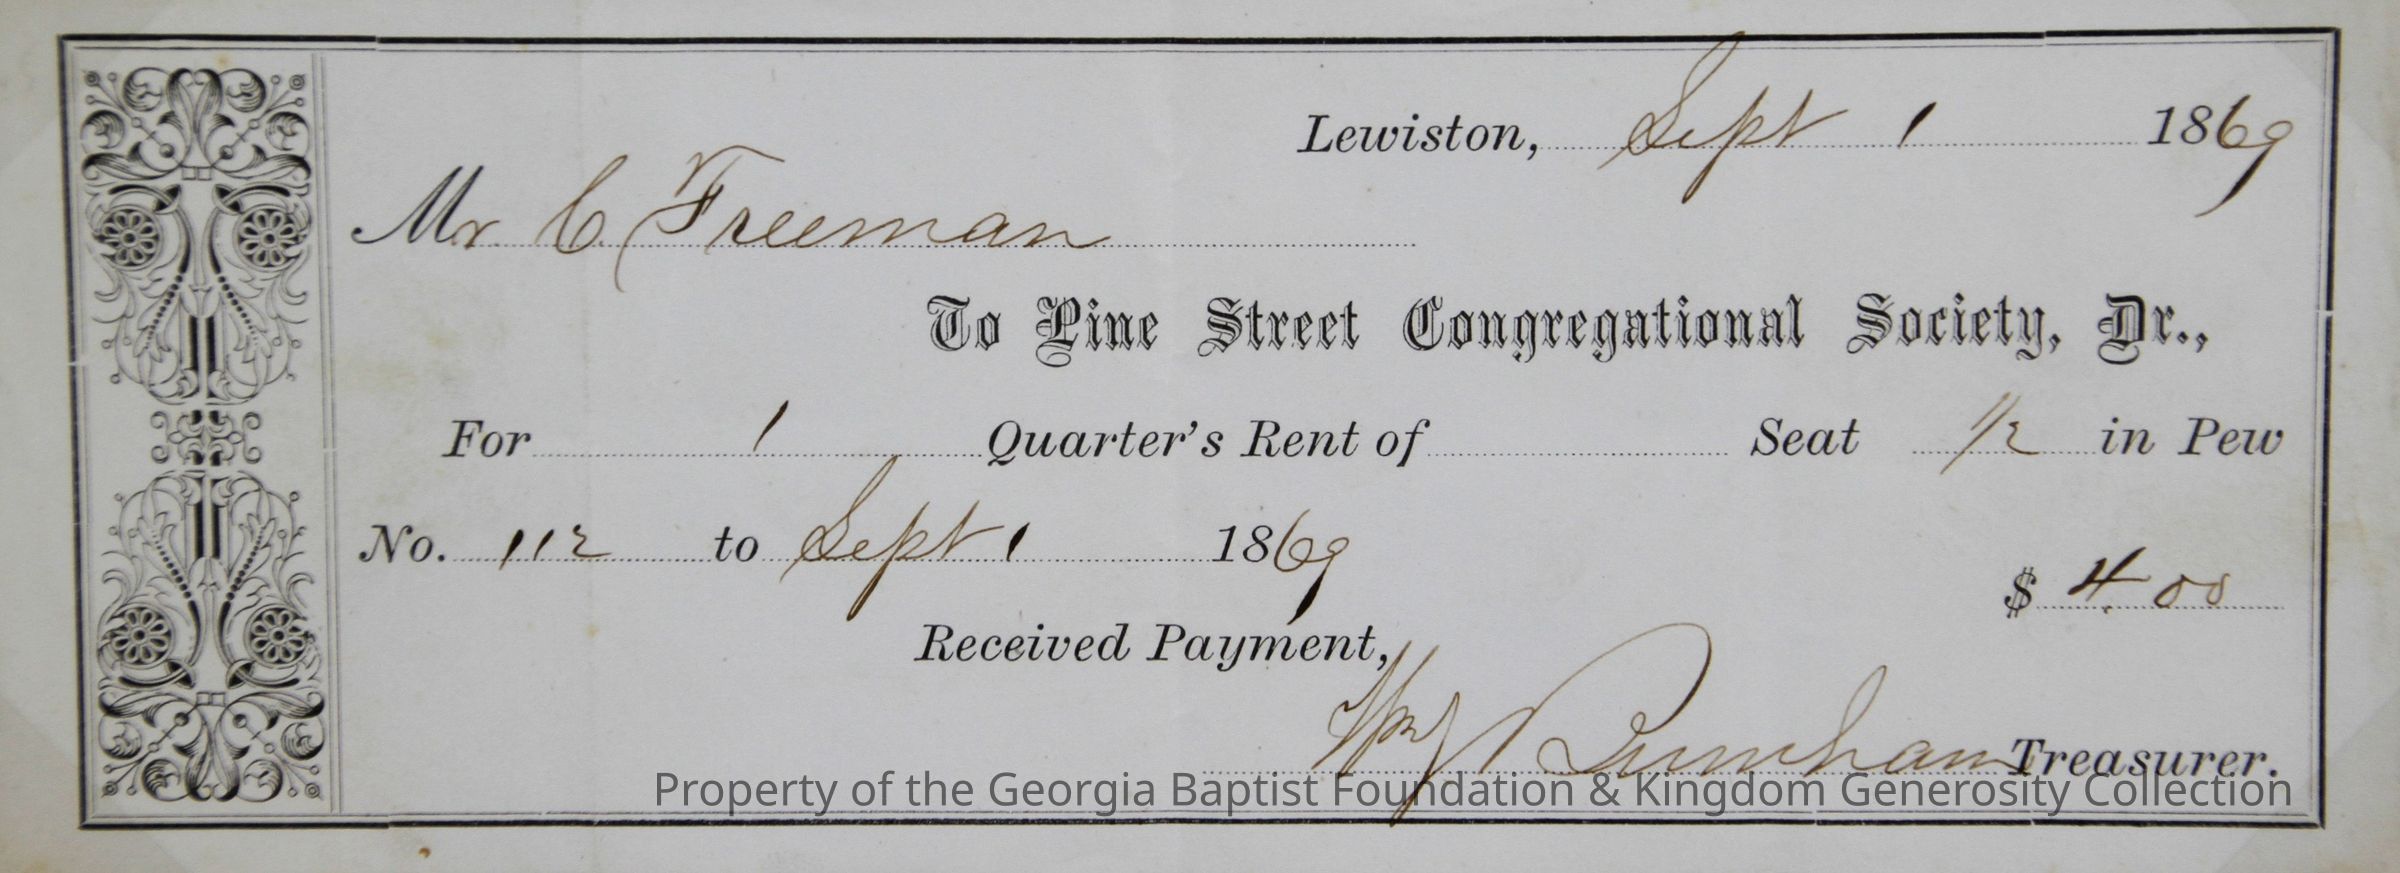 Lewiston, Sept 1 1869
Mr C. Freeman
To Pine Street Congregational Society, Dr.,
For 1 Quarter's Rent of Seat 1/2 in Pew
No. 112 to Sept 1 1869
$ 4.00
Received Payment,
Wm J Burnham Treasurer.
Property of the Georgia Baptist Foundation & Kingdom Generosity Collection